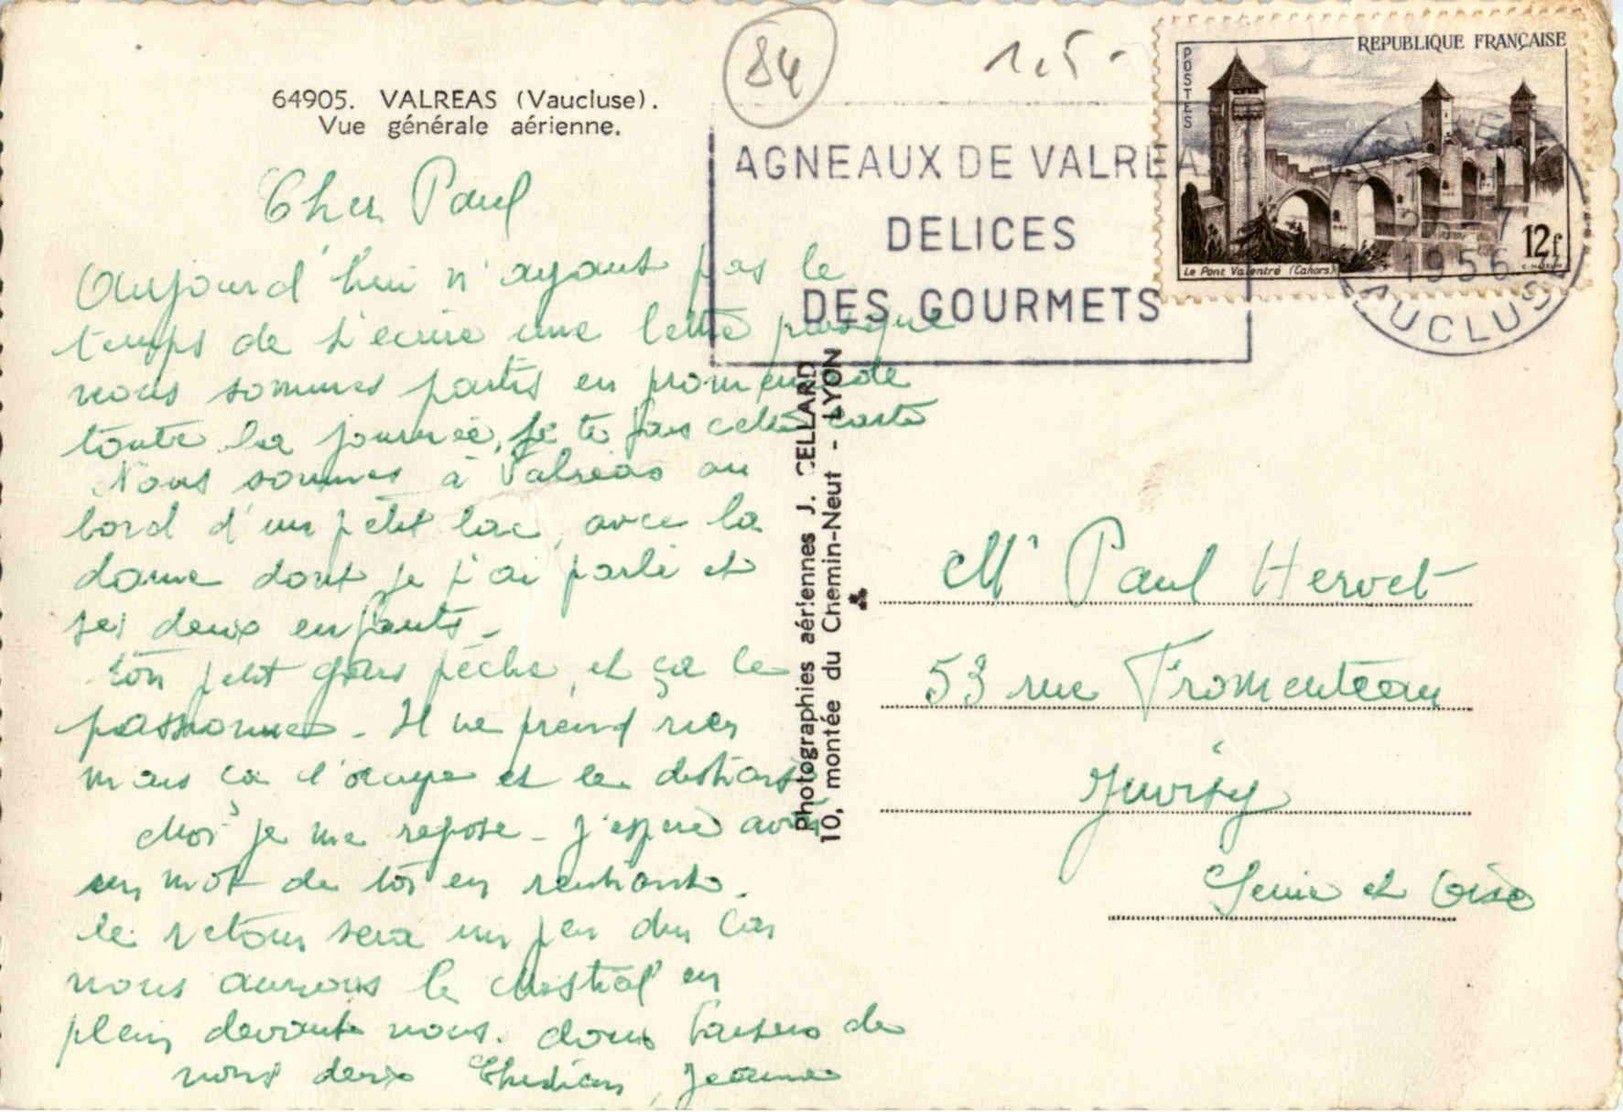 84
1,5-
64905. VALREAS (Vaucluse).
Vue générale aérienne.
AGNEAUX DE VALREA
DELICES
DES GOURMETS
REPUBLIQUE FRANÇAISE
POSTES
12f
Le Pont Valentré (Cahors)
1956
VAUCLUSE
Cher Paul
Aujourd'hui n'ayant pas le
temps de t'écrire une lettre puisque
nous sommes partis en promenade
toute la journée, je te fais cette carte
Nous sommes à Valréas au
bord d'un petit lac, avec la
dame dont je t'ai parlé et
ses deux enfants.
Ton petit gars pêche, et ça le
passionne. Il ne prend rien
mais ça l'occupe et le distrait
Moi je me repose. J'espère avoir
un mot de toi en rentrant.
Le retour sera un peu dur car
nous aurons le Mistral en
plein devant nous. doux baisers de
nous deux Christian, Jeanne
Photographies aériennes J. CELLARD
10, montée du Chemin-Neuf - LYON
Mr Paul Hervet
53 rue Fromenteau
Juvisy
Seine et Oise